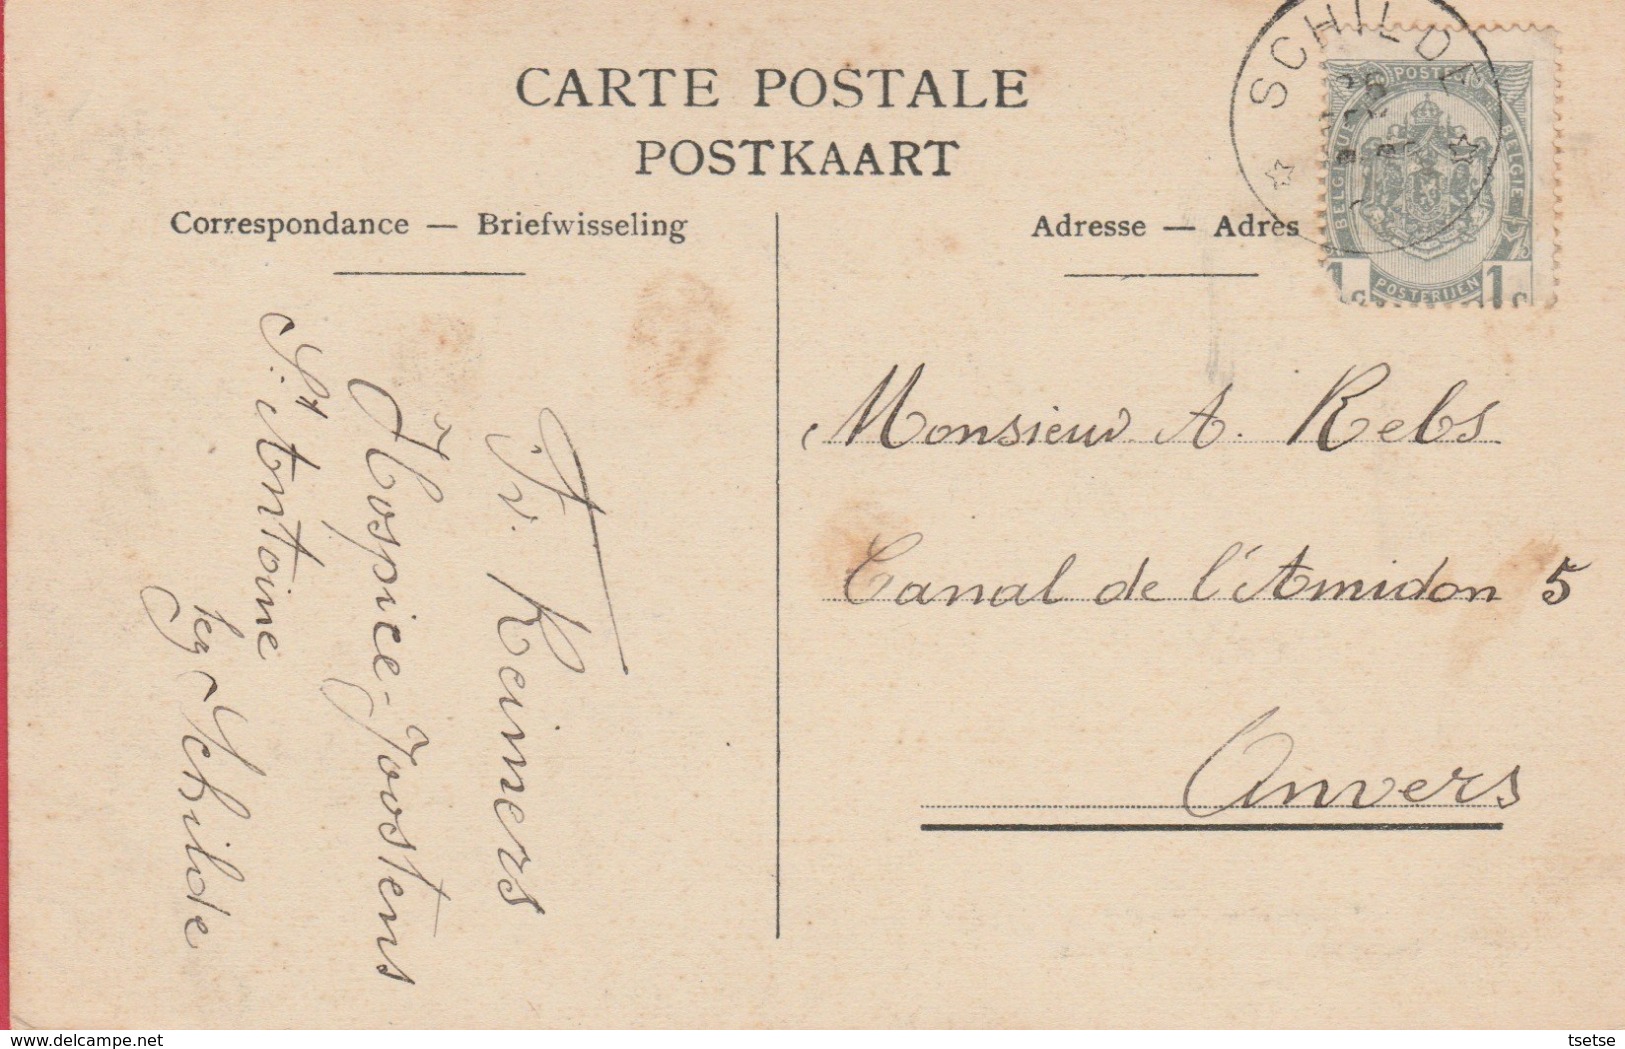 CARTE POSTALE
POSTKAART
Correspondance — Briefwisseling
Adresse — Adres
SCHILDE
POSTES
BELGIQUE
BELGIE
1c 1c
POSTERIJEN
Monsieur A. Rebs
Canal de l'Amidon 5
Anvers
Fr. Reimers
Hospice-Joostens
St. Antoine
leg Schilde
delcampe.net
tsetse